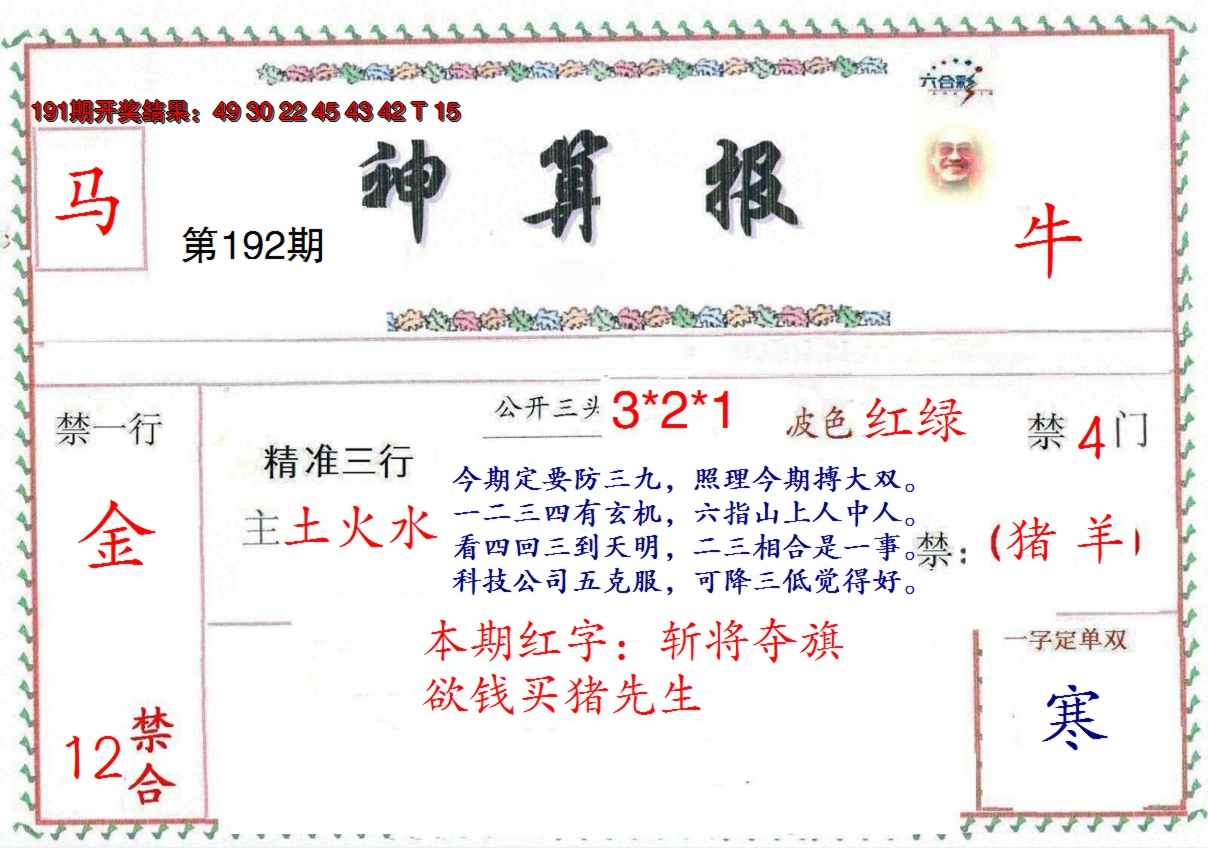 六合彩
191期开奖结果：49 30 22 45 43 42 T 15
马
神算报
第192期
牛
禁一行
金
12禁合
精准三行
主土火水
公开三头 3*2*1
波色 红绿
禁4门
今期定要防三九，照理今期搏大双。
一二三四有玄机，六指山上人中人。
看四回三到天明，二三相合是一事。
科技公司五克服，可降三低觉得好。
禁：（猪 羊）
本期红字：斩将夺旗
欲钱买猪先生
一字定单双
寒